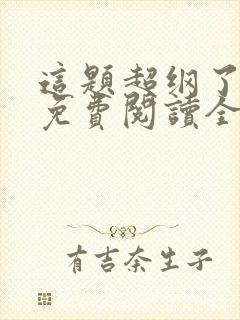 這題超纲了
免費閱讀全
有吉奈生子